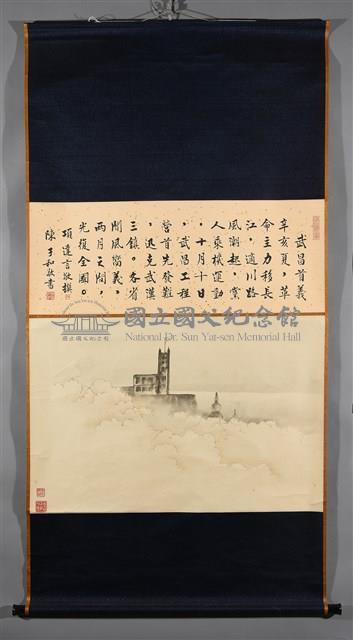 武昌首義
辛亥夏，革
命主力移長
江，適川路
風潮起，黨
人乘機運動
，十月十日
，武昌工程
營首先發難
，迅克武漢
三鎮。各省
聞風嚮義，
兩月之間，
光復全國。
項達言敬撰
陳子和敬書
國立國父紀念館
National Dr. Sun Yat-sen Memorial Hall
國立國父紀念館